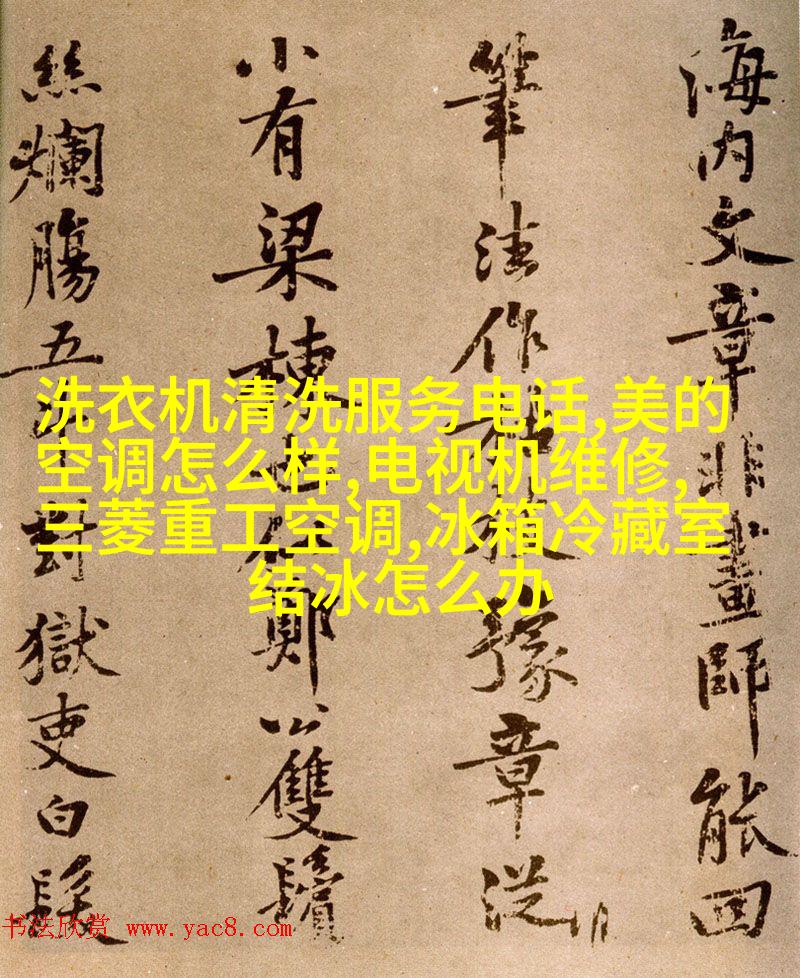 海内文章非畫師能回
筆法作枯枝豫章從
小有梁棟也似鄭公雙鬢
絲爛腸五斗對獄吏白髮
洗衣机清洗服务电话,美的
空调怎么样,电视机维修,
三菱重工空调,冰箱冷藏室
结冰怎么办
书法欣赏 www.yac8.com